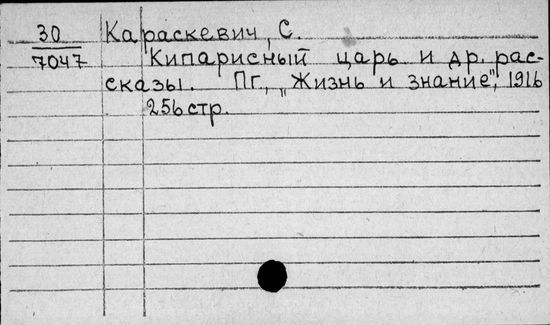 30 Караскевич, С.
7047 Кипарисный царь и др. рас-
сказы. Пг., „Жизнь и знание", 1916
256 стр.